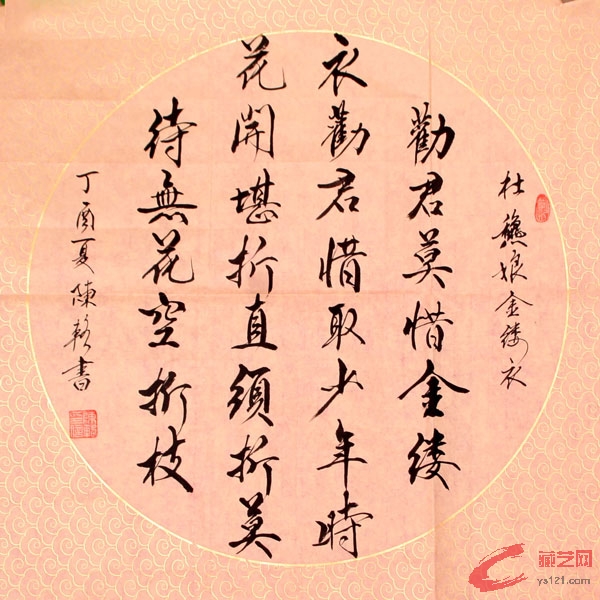 杜穐娘金缕衣
勸君莫惜金缕
衣勸君惜取少年時
花開堪折直須折莫
待無花空折枝
丁酉夏陳書
藏艺网
ys121.com